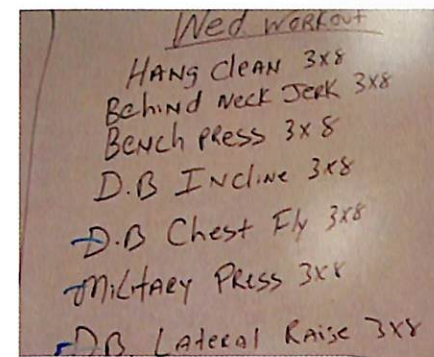 Wed WORKOUT
HANg CleAN 3x8
Behind Neck Jerk 3x8
BeNch PRess 3x8
D.B INcliNe 3x8
D.B Chest Fly 3x8
MiLitARy PRess 3x8
D.B. LAteRAl RAise 3x8